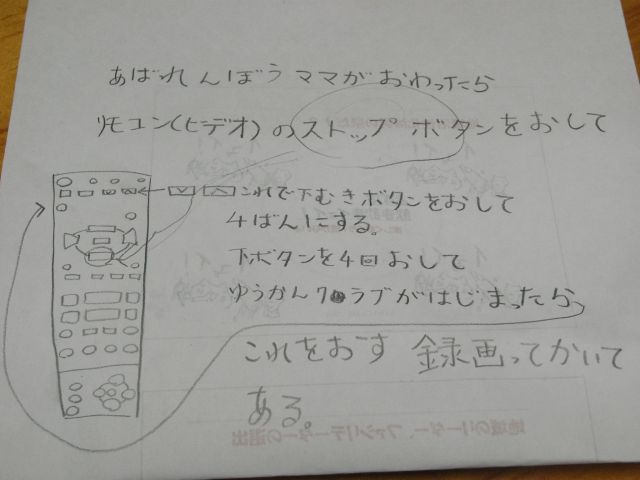 あばれんぼうママがおわったら
リモコン(ビデオ)のストップボタンをおして
これで下むきボタンをおして
4ばんにする。
下ボタンを4回おして
ゆうかんクラブがはじまったら
これをおす 録画ってかいて
ある。
地域のリーダー、ファシリテーターの選出